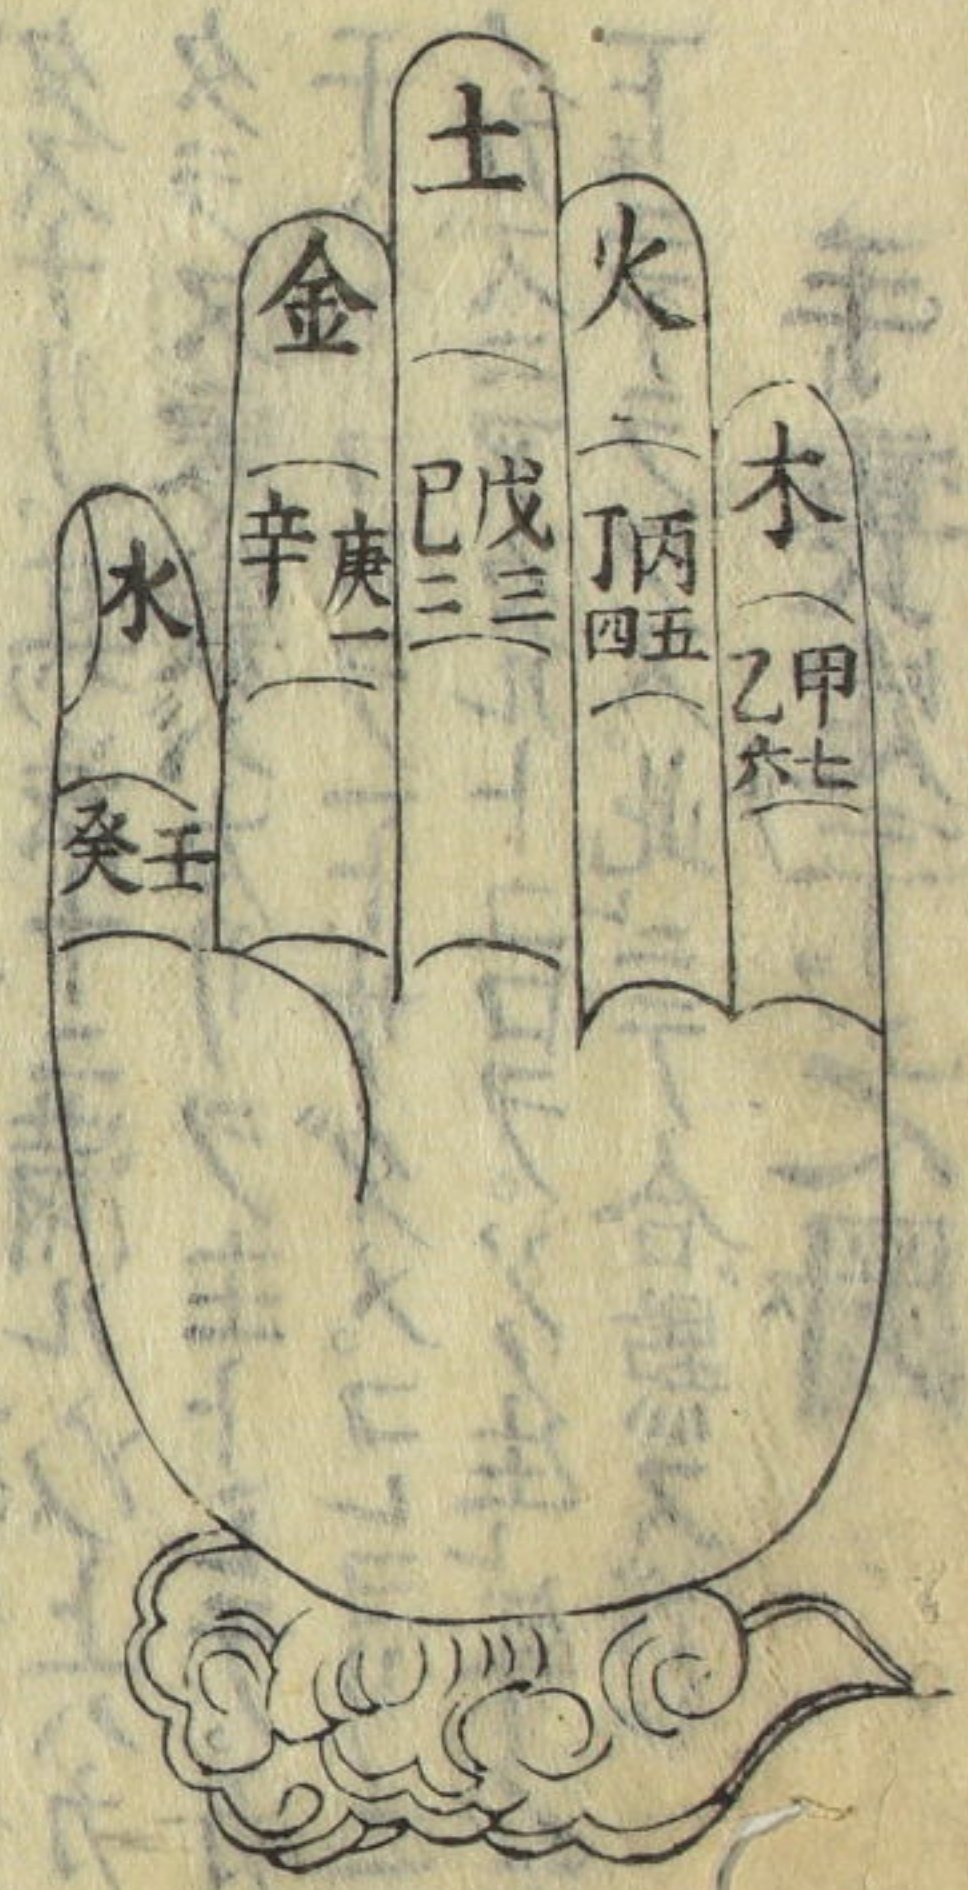 木
甲七
乙六
火
丙五
丁四
土
戊三
巳三
金
庚一
辛
水
壬
癸